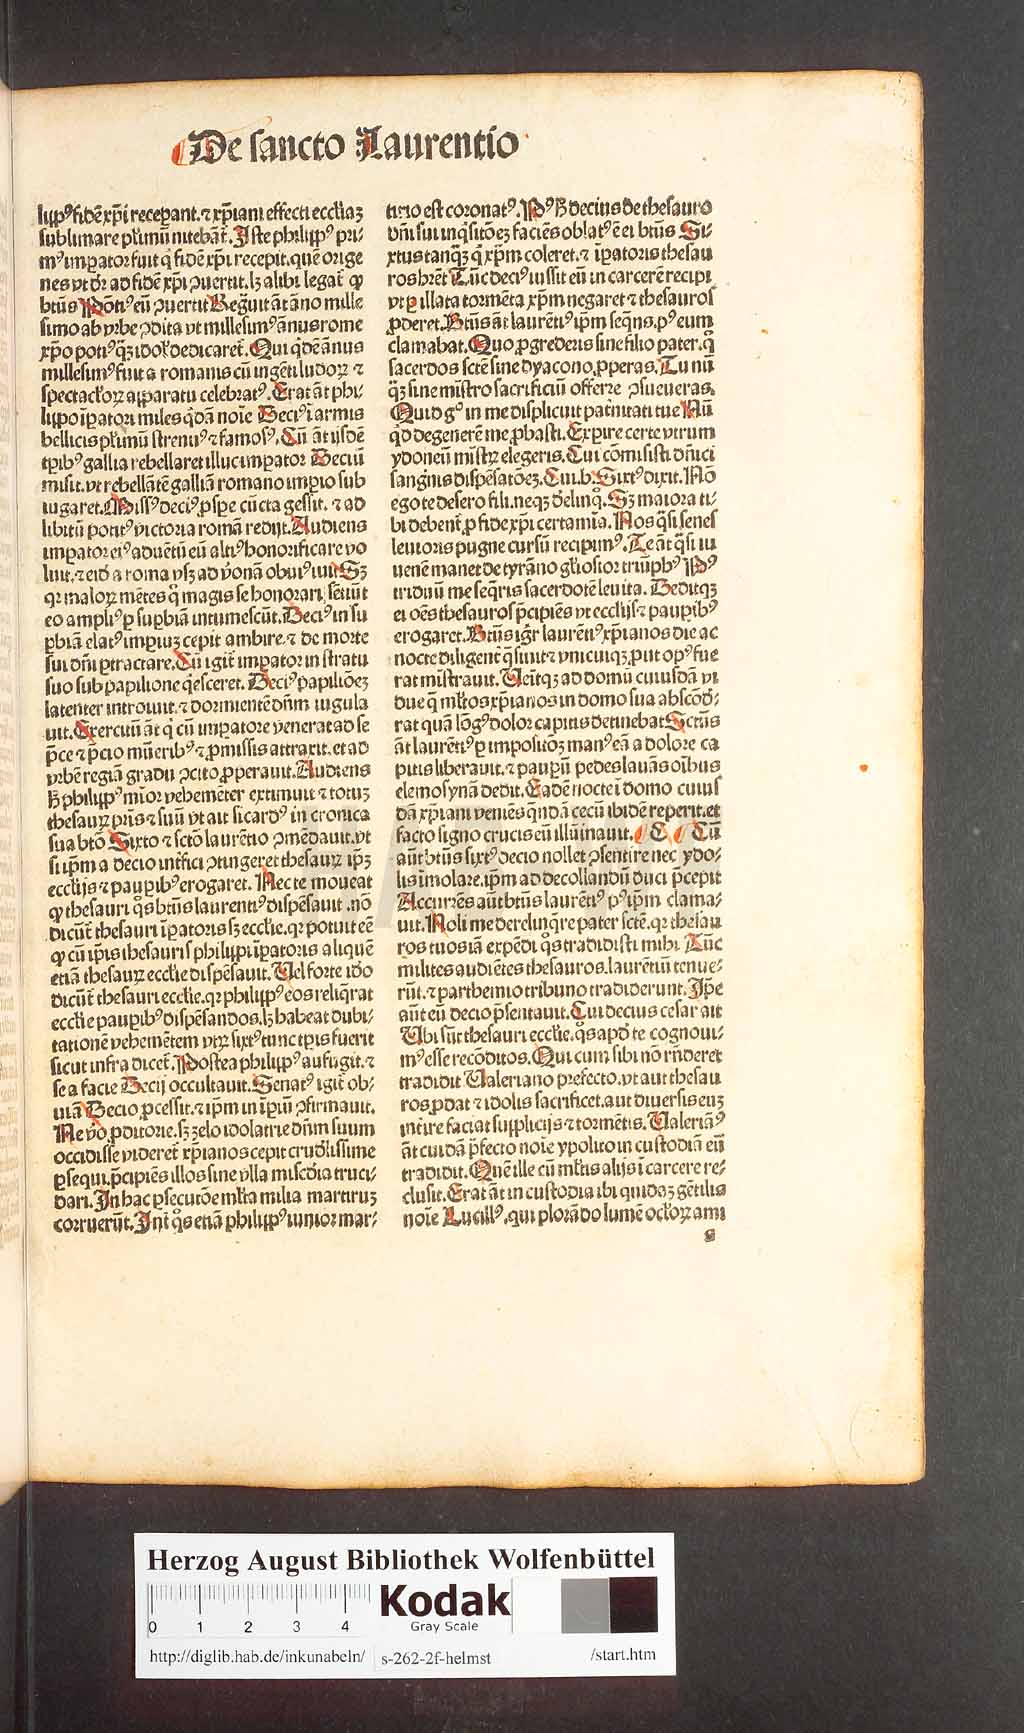 De sancto Laurentio
lippꝰ fidē xp̄i receperant. ⁊ xp̄iani effecti ecclīaꝫ
sublimare plꝛimū nitebāt̄. Iste philippꝰ pri-
mꝰ imꝑator fuit q̇ fidē xp̄i recepit. quē orige
nes vt dr̄ ad fidē xp̄i ꝯuertit. lꝫ alibi legat̄ ꝙ
btūs Pōtiꝰ eū ꝯuertit Regͣuit āt āno mille
simo ab vrbe ꝯdita vt millesimꝰ ānus rome
xp̄o potiꝰ qͣꝫ idol' dedicaret̄. Qui q̇dē ānus
millesimꝰ fuit a romanis cū ingēti ludoꝝ ⁊
spectacl'oꝝ apparatu celebratꝰ. Erat āt phi
lippo īꝑatori miles q̇dā noīe Deciꝰ ī armis
bellicis plꝛimū strenuꝰ ⁊ famosꝰ. Cū āt ijsdē
tꝑibꝰ gallia rebellaret illuc imꝑator Deciū
misit. vt rebellātē galliā romano imꝑio sub
iugaret. Missꝰ deciꝰ ꝓspe cūcta gessit. ⁊ ad
libitū potitꝰ victoria romā redijt. Audiens
imꝑator eiꝰ aduētū eū altiꝰ honorificare vo
luit. ⁊ ei d' a roma vsqꝫ ad v̓onā obuiꝰ iuit Sꝫ
qꝛ maloꝝ mētes q̊ magis se honorari sētiūt
eo ampliꝰ ꝑ suꝑbiā intumescūt. Deciꝰ in su
ꝑbiā elatꝰ imꝑiuꝫ cepit ambire. ⁊ de morte
sui dn̄i ꝑtractare. Cū igit̄ imꝑator in stratu
suo sub papilione q̇esceret. Deciꝰ papiliōeꝫ
latenter introiuit. ⁊ dormientē dn̄m iugula
uit. Exercitū āt q̇ cū imꝑatore venerat ad se
p̄ce ⁊ p̄cio mūeribꝰ ⁊ ꝓmissis attraxit. et ad
vrbē regiā gradu ꝯcito ꝓperauit. Audiens
h̄ philippꝰ mīor vehemēter extimuit ⁊ totuꝫ
thesauꝝ pr̄is ⁊ suū vt ait sicardꝰ in cronica
sua btō Sixto ⁊ sctō laurētio ꝯmēdauit. vt
si ip̄m a decio int̄fici ꝯtingeret thesauꝝ ip̄ꝫ
ecclijs ⁊ pauꝑibꝰ erogaret. Nec te moueat
ꝙ thesauri q̊s btūs laurentiꝰ dispēsauit. nō
dicūt̄ thesauri īꝑatoris sꝫ ecclīe. qꝛ potuit eē
ꝙ cū ip̄is thesauris philippi īꝑatoris aliquē
etiā thesauꝝ ecclīe dispēsauit. Uel forte idō
dicūt̄ thesauri ecclīe. qꝛ philippꝰ eos reliq̄rat
ecclīe pauꝑibꝰ dispēsandos. lꝫ habeat dubi-
tationē vehemētem vtꝝ sixtꝰ tunc tꝑis fuerit
sicut infra dicet̄. Postea philippꝰ aufugit. ⁊
se a facie Decij occultauit. Senatꝰ igit̄ ob-
uiā Decio ꝓcessit. ⁊ ip̄m in īꝑiū ꝯfirmauit.
Ne v̓o ꝓditorie. sꝫ zelo idolatrie dn̄m suum
occidisse videret̄ xp̄ianos cepit crudelissime
ꝑsequi. p̄cipiēs illos sine vlla miscd'ia truci-
dari. In hac ꝑsecutōe ml'ta milia martiruꝫ
corruerūt. Int̄ q̊s etiā philippꝰ iunior mar-
tirio est coronatꝰ. Pꝰ h̄ decius de thesauro
dn̄i sui inq̇sitōeꝫ faciēs oblatꝰ ē ei btūs Si-
xtus tanqͣꝫ q̇ xp̄m coleret. ⁊ īꝑatoris thesau
ros hr̄et Tūc deciꝰ iussit eū in carcerē recipi
vt ꝑ illata tormēta xp̄m negaret ⁊ thesauros
ꝓderet. Btūs āt laurētiꝰ ip̄m seq̄ns. pꝰ eum
clamabat. Quo ꝓgrederis sine filio pater. q̊
sacerdos sctē sine dyacono ꝓperas. Tu nū
qͣꝫ sine mīstro sacrificiū offerre ꝯsueueras.
Quid gͦ in me displicuit pat̓nitati tue Nū
q̇d degenerē me ꝓbasti. Exꝑire certe vtrum
ydoneū mistꝝ elegeris. Cui cōmisisti dn̄ici
sanguīs dispēsatōeꝫ. Cui. b. Sixtꝰ dixit. Nō
ego te desero fili. neqꝫ d'elinq̊. Sꝫ maiora ti-
bi debent̄ ꝓ fide xp̄i certamīa. Nos qͣsi senes
leuioris pugne cursū recipimꝰ. Te āt qͣsi iu
uenē manet de tyrāno gl'iosior triūphꝰ Pꝰ
triduū me seq̄ris sacerdotē leuita. Deditqꝫ
ei oēs thesauros p̄cipiēs vt ecclijs ⁊ pauꝑibꝰ
erogaret. Btūs igr̄ laurētiꝰ xp̄ianos die ac
nocte diligent̄ q̄siuit ⁊ vnicuiqꝫ ꝓut opꝰ fue
rat mīstrauit. Uēitqꝫ ad domū cuiusdā vi
due q̄ ml'tos xp̄ianos in domo sua abscōd'-
rat quā lōgꝰ dolor capitis detinebat Sctūs
āt laurētiꝰ ꝑ impositōeꝫ manꝰ eā a dolore ca
pitis liberauit. ⁊ pauꝑū pedes lauās oībus
elemosynā dedit. Eadē nocte ī domo cuius
dā xp̄iani veniēs q̄ndā cecū ibidē reperit. et
facto signo crucis eū illūinauit. C Cū
aūt btūs sixtꝰ decio nollet ꝯsentire nec ydo-
lis īmolare. ip̄m ad decollandū duci p̄cepit
Accurrēs aūt btūs laurētiꝰ pꝰ ip̄m clama-
uit. Noli me derelinq̄re pater sctē. qꝛ thesau
ros tuos iā expēdi q̊s tradidisti mihi. Tūc
milites audiētes thesauros. laurētiū tenue-
rūt. ⁊ parthemio tribuno tradiderunt. Ip̄e
aūt eū decio p̄sentauit. Cui decius cesar ait
Ubi sūt thesauri ecclīe. q̊s apd' te cognoui-
mꝰ esse recōditos. Qui cum sibi nō rn̄deret
tradidit Ualeriano prefecto. vt aut thesau
ros ꝓdat ⁊ idolis sacrificet. aut diuersis euꝫ
int̓ire faciat supplicijs ⁊ tormētis. Ualeriāꝰ
āt cuidā p̄fecto noīe ypolito in custodiā eū
tradidit. Quē ille cū ml'tis alijs ī carcere re-
clusit. Erat āt in custodia ibi quidaꝫ gētilis
noīe Lucillꝰ. qui plorādo lumē ocl'oꝝ ami
s
Herzog August Bibliothek Wolfenbüttel
0 1 2 3 4
Kodak
Gray Scale
http://diglib.hab.de/inkunabeln/ s-262-2f-helmst /start.htm
HAB